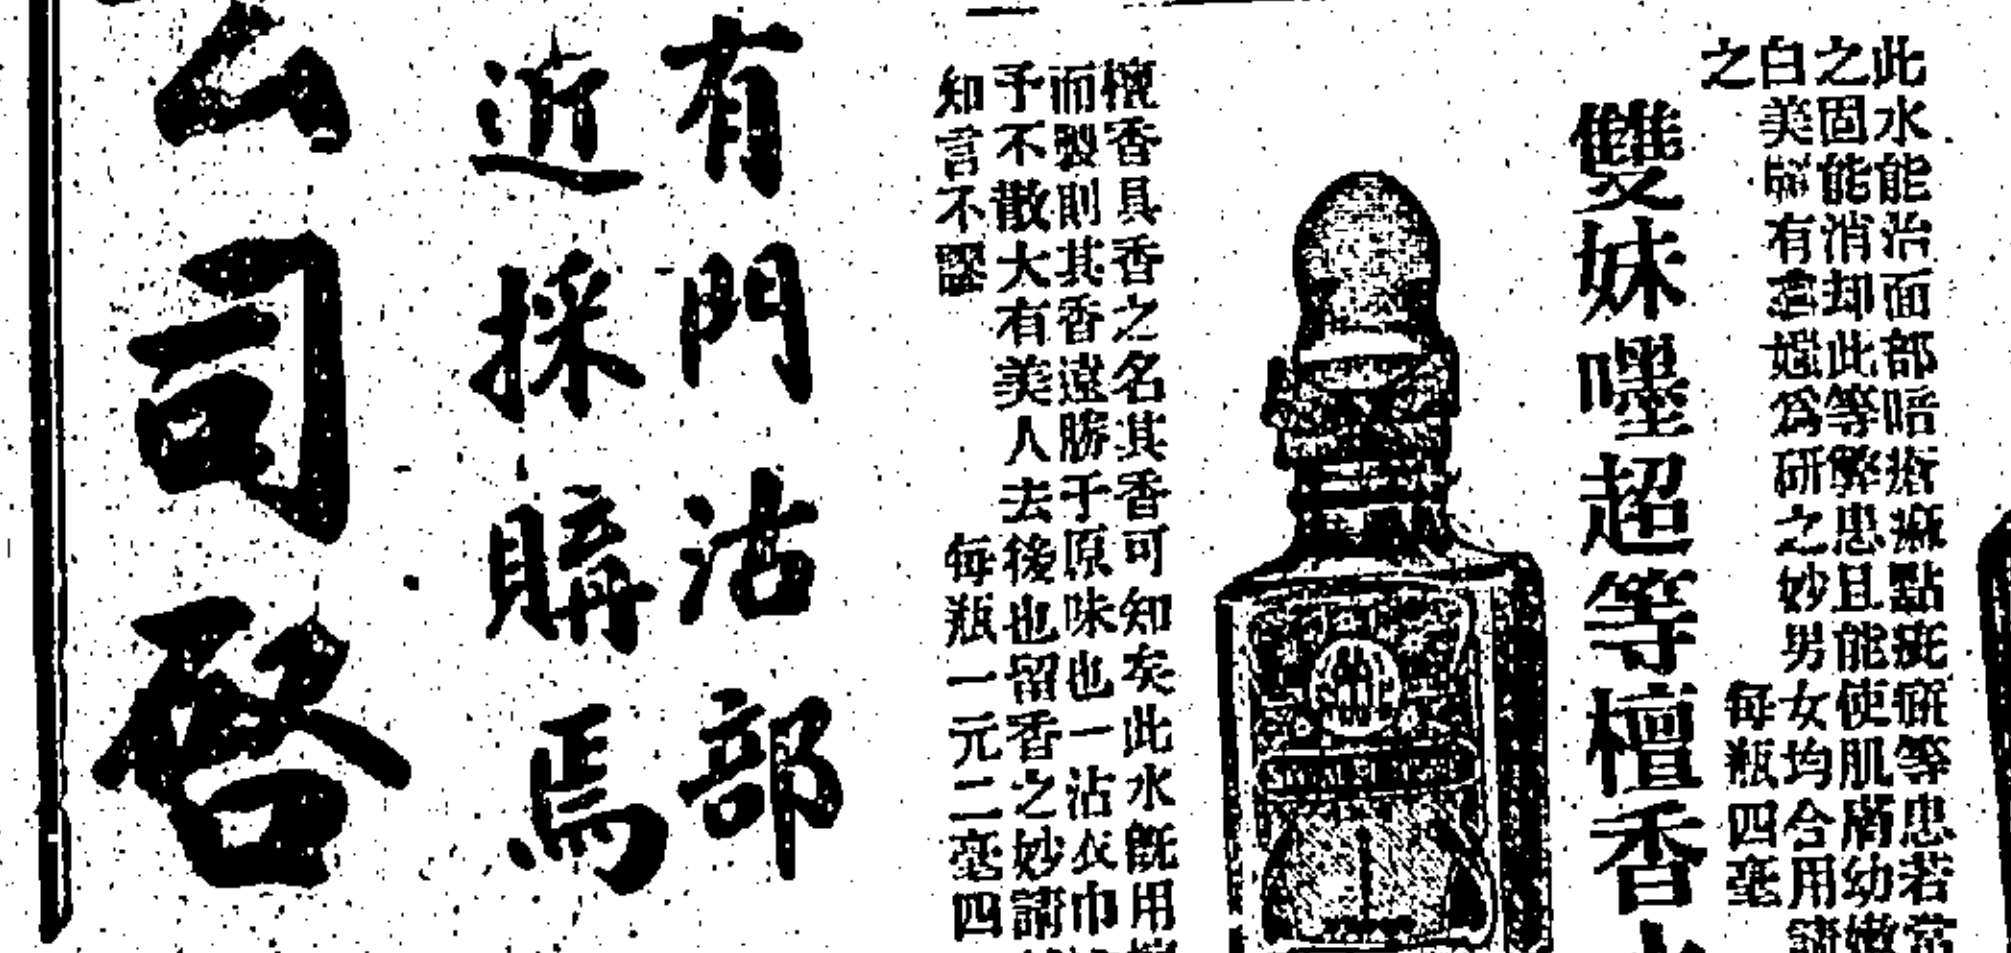 此水能治面部唔瘡癍點疵癖等患若常
之固能消却此等弊患且能使肌膚幼嫩
白美麗有意嬌為研之妙男女均合用請
之
每瓶四毫
雙妹嚜超等檀香
檀香具香之名其香可知矣此水既用檀
而製則其香遠勝于原味也一沾衣巾
予不散大有美人去後也留香之妙請
知言不謬
每瓶一元二毫四
有門沽部
近採購焉
公司啓